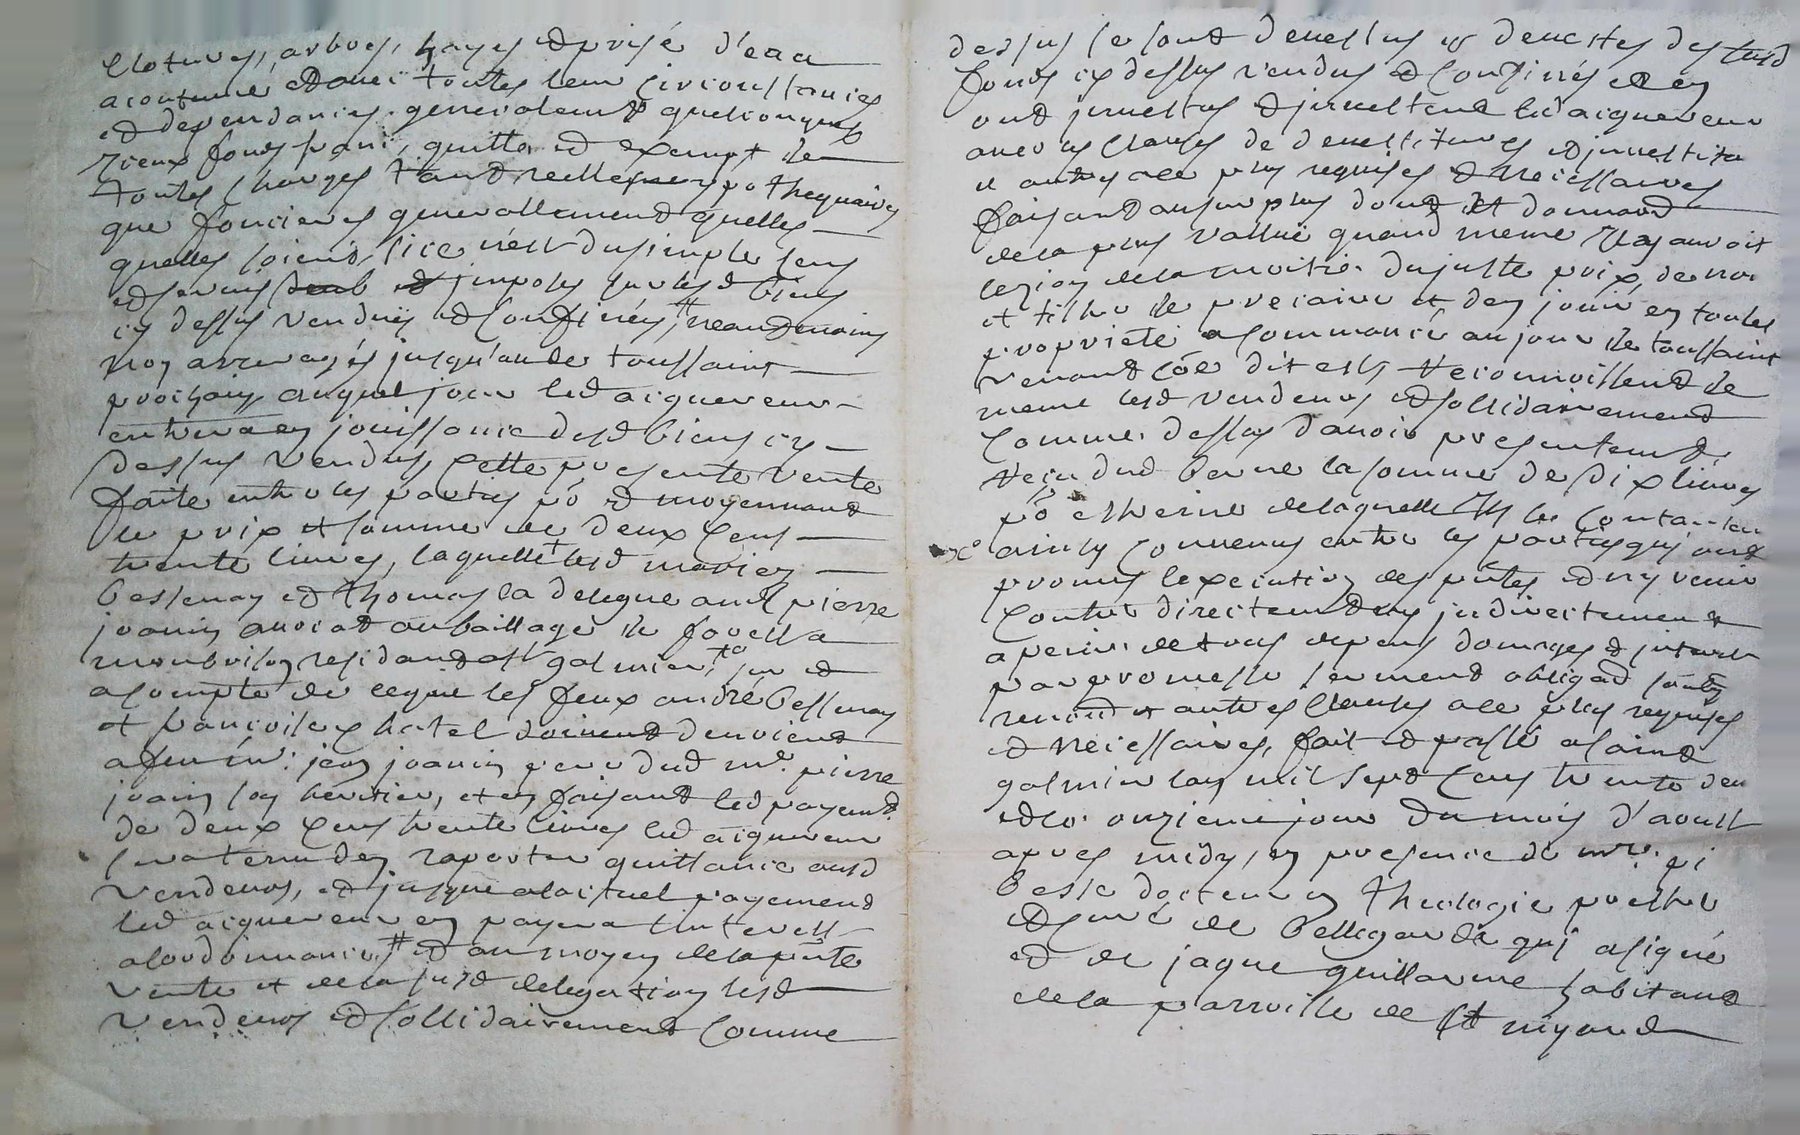 clotures, arbres, hayes et prise d'eau
acoutumé et avec toutes leur circonstances
et dependances generalement quelconques
iceux fons franc, quitte, et exempt de
toutes charges tant reelles ypothequaires
que foncieres generallement quelles
quelles soient, si ce n'est du simple sens
et servis imposés sur lesd biens
cy dessus vendus et confinés, # neandmoins
non arreragés jusqu'au de toussaint
prochain auquel jour led acquereur
entrera en jouissance desd biens cy
dessus vendus, cette presente vente
faite entre les parties po et moyennant
le prix et somme de deux cens
trente livres, laquelle + lesd mariez
Bessenay et thomas la delegue aud pierre
joanin avocat au baillage de forest a
montbrison residant a st galmier, sur et
a compte de ce que les feux andré Bessenay
et françoise chatel doivent
a feu me. jean joanin pere dud me. pierre
joanin son heritier, et en faisant led payemt.
de deux cens trente livres led acquereur
sera tenu den raporter quittance ausd
vendeurs, et jusque a lactuel payement
led acquereur en payera linterest
a lordonnance, # et au moyen de la pnte
vente et de la susd delegation lesd
vendeurs et sollidairement comme
dessus se sont devestus et devestes des susd
fonds cy dessus vendus et confinés et en
ont investus et investent led acquereur
avec les clauses de devestitures et investitu
et autres a ce plus requises et necessaires
faisant au surplus dont et donnant
de la plus vallue quand meme il y auroit
lezion de la moitié du juste prix, de nom
et tiltre de precaire et den jouir en toutes
proprieté a commancé au jour de toussaint
venant coe dit est, reconnoissent de
meme lesd vendeurs et sollidairement
comme dessus d'avoir presentement
reçu dud la somme de dix livres
po etreine de laquelle ils se contanten
ainsy convenus entre les parties qui ont
promis lexecution des pntes et ny venir
contre directement ny indirectement
a peine de tous depens domages et interets
par promesse serment obligaon soubz
renon et autres clauses a ce plus requises
et necessaires, fait et passé a saint
galmier lan mil sept cens trente deu
et le onzieme jour du mois d'aoust
apres midy, en presence de mre. pi
Besse docteur en theologie prestre
et curé de Bellegarde qui a signé
et de jaque guillaume habitant
de la parroisse de st